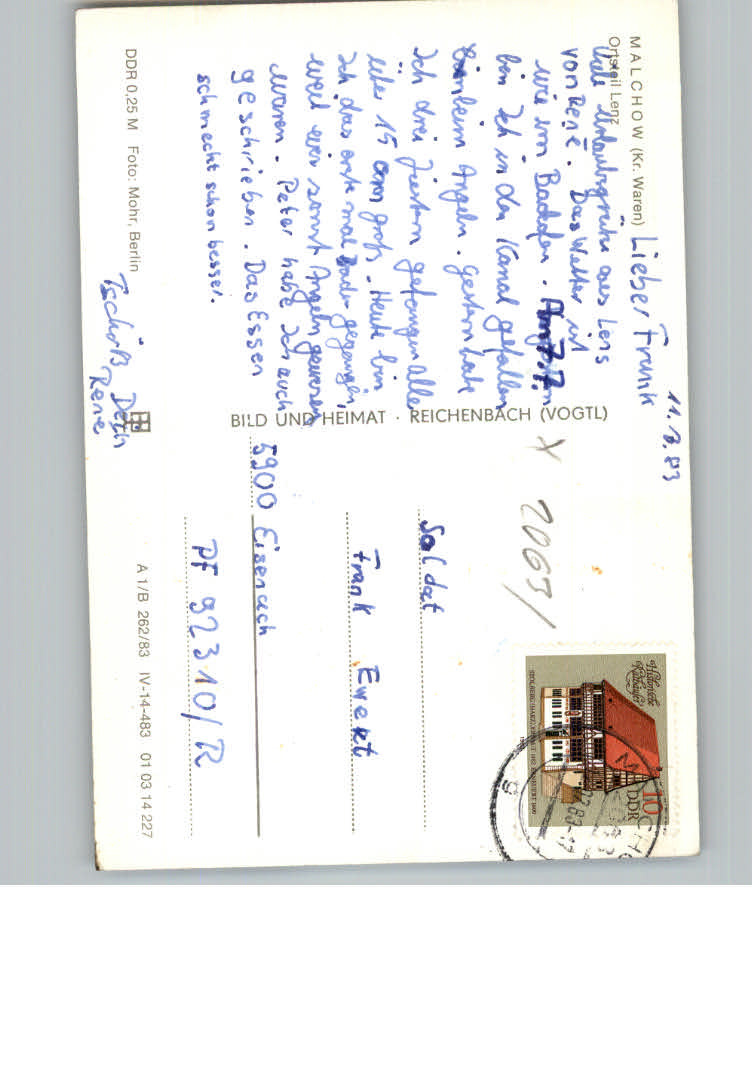 MALCHOW (Kr. Waren)
Ortsteil Lenz
11.7.83
Lieber Frank
Viele Urlaubsgrüße aus Lens
von René. Das Wetter ist
wie im Baden. Am 7.7.
bin Ich in den Kanal gefallen
beim Angeln. gestern habe
Ich drei gefangen alle
über 15 cm groß. Heute bin
Ich das erste mal Baden gegangen,
weil wir sonst Angeln gewesen
waren. Peter habe Ich auch
geschrieben. Das Essen
schmecht schon besser.
Tschüß Dein
René
DDR 0,25 M Foto: Mohr, Berlin
BILD UND HEIMAT · REICHENBACH (VOGTL)
2065/
Soldat
Frank Ewert
5900 Eisenach
PF 92310/R
A 1/B 262/83 IV-14-483 01 03 14 227
Historische
Rathäuser
10
DDR